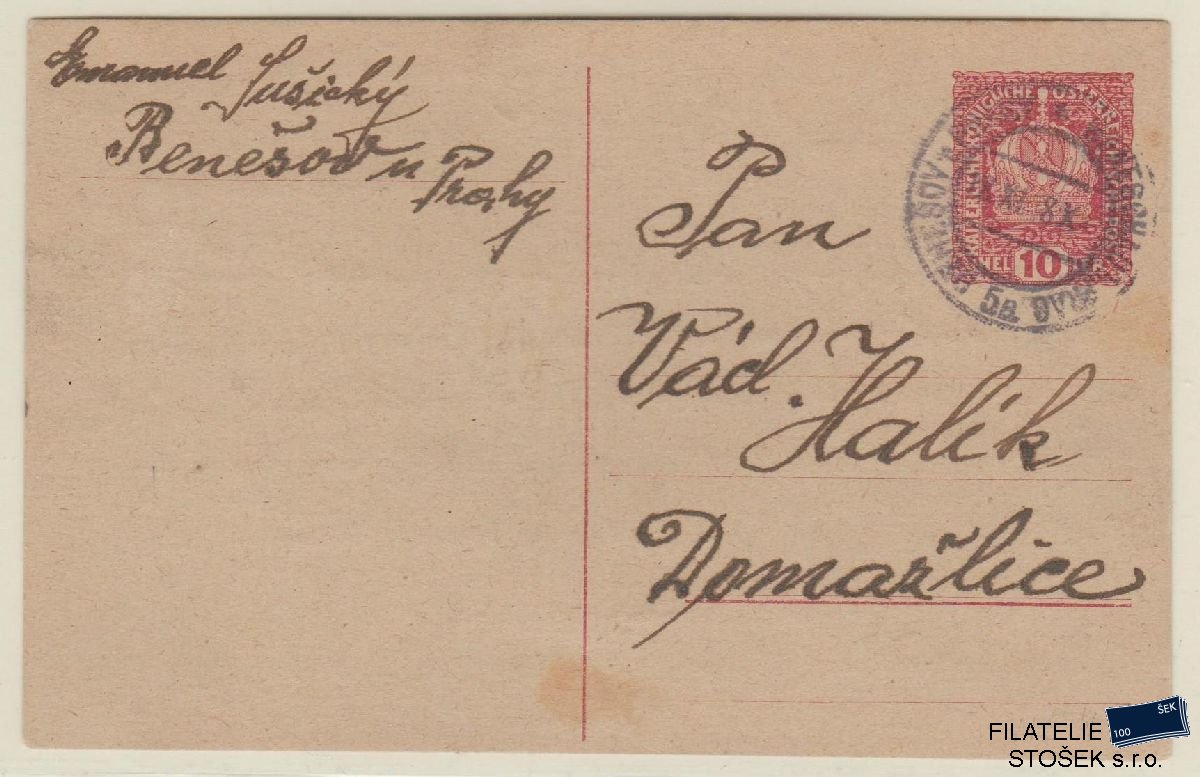 Emanuel Sušický
Benešov u Prahy
KAISERLICHE KÖNIGLICHE ÖSTERREICH
HEL 10 LER
5a
Pan
Vád. Halík
Domažlice
FILATELIE
STOŠEK s.r.o.
100 ŠEK